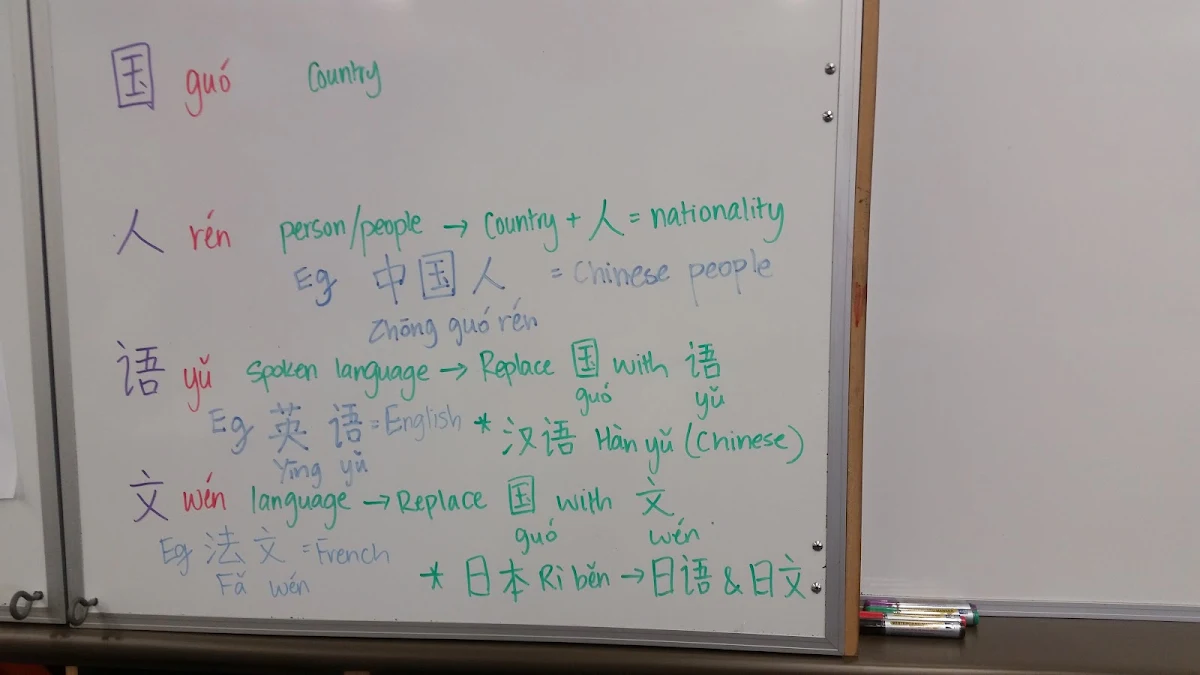 国 guó Country
人 rén person/people → Country + 人 = nationality
Eg 中国人 = Chinese people
Zhōng guó rén
语 yǔ spoken language → Replace 国 with 语
guó yǔ
Eg 英语 = English * 汉语 Hàn yǔ (Chinese)
Yīng yǔ
文 wén language → Replace 国 with 文
guó wén
Eg 法文 = French
Fǎ wén
* 日本 Rì běn → 日语 & 日文